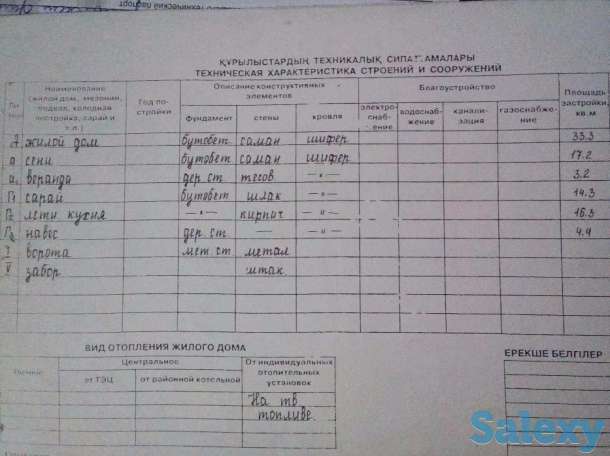 ҚҰРЫЛЫСТАРДЫҢ ТЕХНИКАЛЫҚ СИПАТТАМАЛАРЫ
ТЕХНИЧЕСКАЯ ХАРАКТЕРИСТИКА СТРОЕНИЙ И СООРУЖЕНИЙ
Наименование (жилой дом, мезонин, подвал, холодная пристройка, сарай и т.п.) Год постройки Описание конструктивных элементов Благоустройство Площадь застройки, кв.м
фундамент стены кровля электроснабжение водоснабжение канализация газоснабжение
А жилой дом бутобет саман шифер 33.3
а сени бутобет саман шифер 17.2
а₁ веранда дер.ст тесов. —»— 3.2
Г₁ сарай бутобет шлак —»— 14.3
Г₂ летн. кухня —»— кирпич —»— 16.3
Г₃ навес дер.ст — —»— 4.4
I ворота мет.ст метал
V забор штак.
ВИД ОТОПЛЕНИЯ ЖИЛОГО ДОМА
ЕРЕКШЕ БЕЛГІЛЕР
Печное Центральное От индивидуальных отопительных установок
от ТЭЦ от районной котельной
На тв
топливе
Salexy